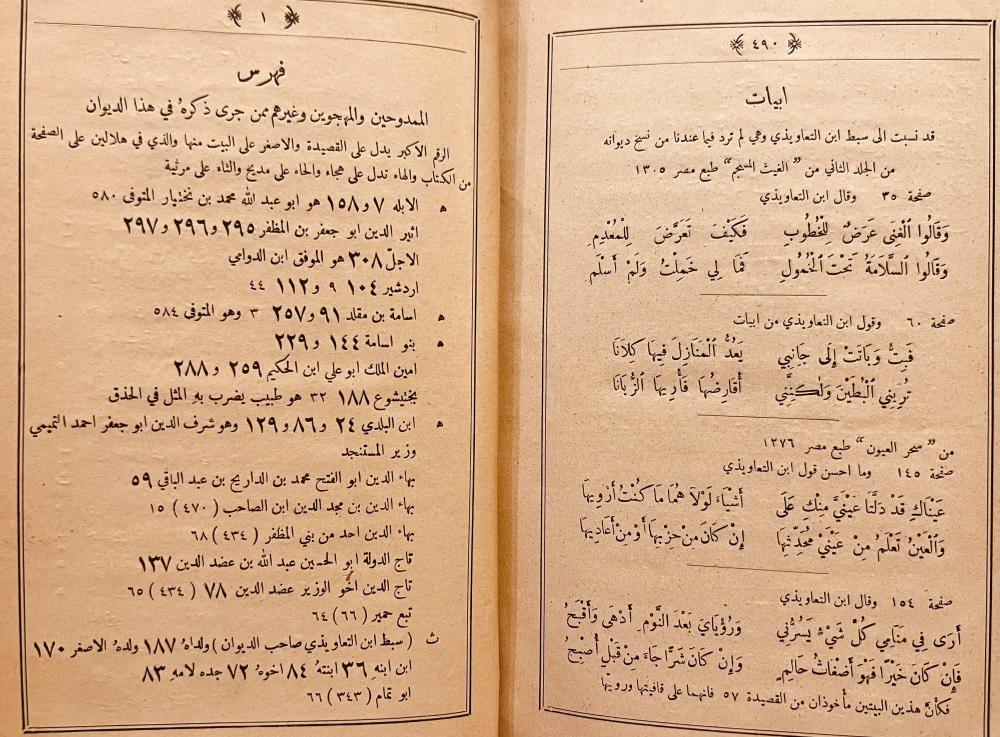 ٤٩٠
ابيات
قد نسبت الى سبط ابن التعاويذي وهي لم ترد فيما عندنا من نسخ ديوانه
من الجلد الثاني من ”الغيث المسجم“ طبع مصر ١٣٠٥
صفحة ٣٥ وقال ابن التعاويذي
وَقَالُوا ٱلْغِنَى عَرَضٌ لِلْخُطُوبِ فَكَيْفَ تَعَرَّضَ لِلْمُعْدِمِ
وَقَالُوا ٱلسَّلَامَةُ تَحْتَ ٱلْخُمُولِ فَمَا لِي خَمِلْتُ وَلَمْ أَسْلَمِ
صفحة ٦٠ وقول ابن التعاويذي من ابيات
فَبِتُّ وَبَانَتْ إِلَى جَانِبِي يَعُدُّ ٱلْمَنَازِلَ فِيهَا كِلَانَا
تُرِينِي ٱلْبُطَيْنَ وَلٰكِنَّنِي أُقَارِضُهَا فَأُرِيهَا ٱلزُّبَانَا
من ”سحر العيون“ طبع مصر ١٢٧٦
صفحة ١٤٥ وما احسن قول ابن التعاويذي
عَيْنَاكِ قَدْ دَلَّتَا عَيْنَيَّ مِنْكِ عَلَى أَشْيَاءَ لَوْلَا هُمَا مَا كُنْتُ أَرْوِيهَا
وَٱلْعَيْنُ تَعْلَمُ مِنْ عَيْنَيْ مُحَدِّثِهَا إِنْ كَانَ مِنْ حِزْبِهَا أَوْ مِنْ أَعَادِيهَا
صفحة ١٥٤ وقال ابن التعاويذي
أَرَى فِي مَنَامِي كُلَّ شَيْءٍ يَسُرُّنِي وَرُؤْيَايَ بَعْدَ النَّوْمِ أَدْهَى وَأَقْبَحُ
فَإِنْ كَانَ خَيْرًا فَهْوَ أَضْغَاثُ حَالِمٍ وَإِنْ كَانَ شَرًّا جَاءَ مِنْ قَبْلِ أُصْبِحُ
فكأنَّ هذين البيتين مأخوذان من القصيدة ٥٧ فانهما على قافيتها ورويها
١
فهرس
الممدوحين والمهجوين وغيرهم ممن جرى ذكرهُ في هذا الديوان
الرقم الاكبر يدل على القصيدة والاصغر على البيت منها والذي في هلالين على الصفحة
من الكتاب والهاء تدل على هجاء والحاء على مديح والثاء على مرثية
ه الابله ٧ و١٥٨ هو ابو عبد الله محمد بن بختيار المتوفى ٥٨٠
اثير الدين ابو جعفر بن المظفر ٢٩٥ و٢٩٦ و٢٩٧
الاجلّ ٣٠٨ هو الموفق ابن الدوامي
اردشير ١٠٤ ٩ و١١٢ ٤٤
ه اسامة بن مقلد ٩١ و٢٥٧ ٣ وهو المتوفى ٥٨٤
ه بنو اسامة ١٤٤ و٢٢٩
امين الملك ابو علي ابن الحكيم ٢٥٩ و٢٨٨
بختيشوع ١٨٨ ٣٢ هو طبيب يضرب بهِ المثل في الحذق
ه ابن البلدي ٢٤ و٨٦ و١٢٩ وهو شرف الدين ابو جعفر احمد التميمي
وزير المستنجد
بهاء الدين ابو الفتح محمد بن الداريج بن عبد الباقي ٥٩
بهاء الدين بن مجد الدين ابن الصاحب (٤٧٠) ١٥
بهاء الدين احد من بني المظفر (٤٣٤) ٦٨
تاج الدولة ابو الحسين عبد الله بن عضد الدين ١٣٧
تاج الدين اخو الوزير عضد الدين ٧٨ (٤٣٤) ٦٥
تبع حمير (٦٦) ٦٤
ث (سبط ابن التعاويذي صاحب الديوان) ولداهُ ١٨٧ ولدهُ الاصغر ١٧٠
ابن ابنهِ ٣٦ ابنتهُ ٨٤ اخوهُ ٧٢ جده لامهِ ٨٣
ابو تمام (٣٤٣) ٦٦